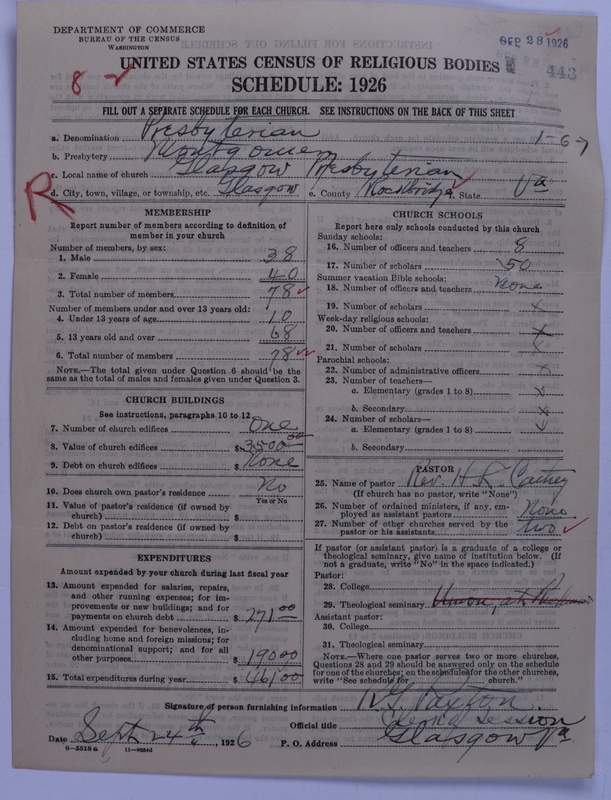 DEPARTMENT OF COMMERCE
BUREAU OF THE CENSUS
WASHINGTON
SEP 28 1926
443
8
UNITED STATES CENSUS OF RELIGIOUS BODIES
SCHEDULE: 1926
FILL OUT A SEPARATE SCHEDULE FOR EACH CHURCH. SEE INSTRUCTIONS ON THE BACK OF THIS SHEET
a. Denomination Presbyterian
1-6-7
b. Presbytery Montgomery
c. Local name of church Glasgow Presbyterian
R
d. City, town, village, or township, etc. Glasgow e. County Rockbridge f. State Va
MEMBERSHIP
Report number of members according to definition of
member in your church
Number of members, by sex:
1. Male 38
2. Female 40
3. Total number of members 78
Number of members under and over 13 years old:
4. Under 13 years of age 10
5. 13 years old and over 68
6. Total number of members 78
NOTE.—The total given under Question 6 should be the
same as the total of males and females given under Question 3.
CHURCH BUILDINGS
See instructions, paragraphs 10 to 12
7. Number of church edifices One
8. Value of church edifices $ 3500.00
9. Debt on church edifices $ None
10. Does church own pastor's residence No
Yes or No
11. Value of pastor's residence (if owned by
church) $
12. Debt on pastor's residence (if owned by
church) $
EXPENDITURES
Amount expended by your church during last fiscal year
13. Amount expended for salaries, repairs,
and other running expenses; for im-
provements or new buildings; and for
payments on church debt $ 271.00
14. Amount expended for benevolences, in-
cluding home and foreign missions; for
denominational support; and for all
other purposes $ 190.00
15. Total expenditures during year $ 461.00
CHURCH SCHOOLS
Report here only schools conducted by this church
Sunday schools:
16. Number of officers and teachers 8
17. Number of scholars 50
Summer vacation Bible schools:
18. Number of officers and teachers None
19. Number of scholars x
Week-day religious schools:
20. Number of officers and teachers x
21. Number of scholars x
Parochial schools:
22. Number of administrative officers x
23. Number of teachers—
a. Elementary (grades 1 to 8) x
b. Secondary x
24. Number of scholars—
a. Elementary (grades 1 to 8) x
b. Secondary
PASTOR
25. Name of pastor Rev. H. R.
(If church has no pastor, write "None")
26. Number of ordained ministers, if any, em-
ployed as assistant pastors None
27. Number of other churches served by the
pastor or his assistants two
If pastor (or assistant pastor) is a graduate of a college or
theological seminary, give name of institution below. (If
not a graduate, write "No" in the space indicated.)
Pastor:
28. College
29. Theological seminary Union,
Assistant pastor:
30. College
31. Theological seminary
NOTE.—Where one pastor serves two or more churches,
Questions 28 and 29 should be answered only on the schedule
for one of the churches; on the schedule for the other churches,
write "See schedule for church."
Signature of person furnishing information Paxton
Official title Session
Date Sept 24th, 1926 P. O. Address Glasgow Va
8-5518 a 11-9054d